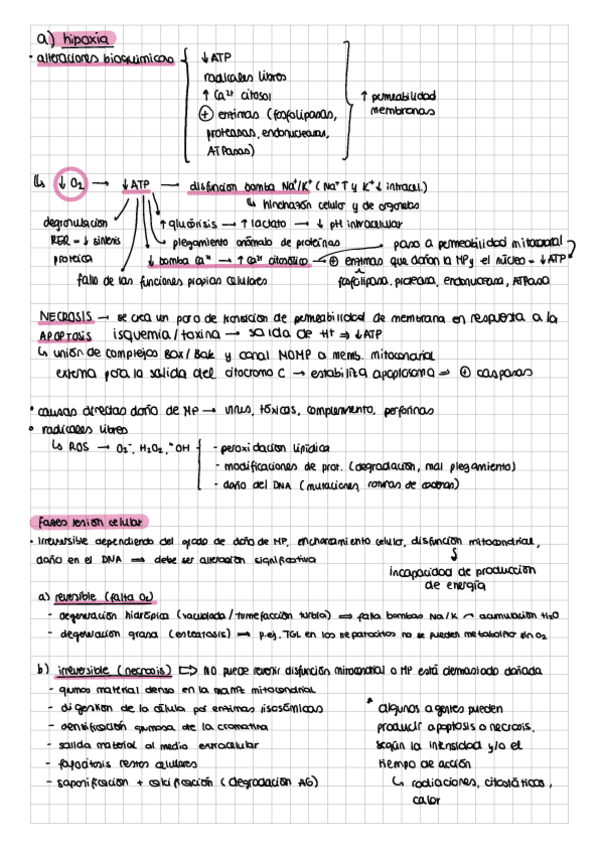 a) hipoxia
· alteraciones bioquímicas
↓ATP
radicales libres
↑ Ca2+ citosol
⊕ enzimas (fosfolipasas,
proteasas, endonucleasas,
ATPasas)
↑ permeabilidad
membranas
↳ ↓O2 → ↓ATP → disfunción bomba Na+/K+ (Na+↑ y K+↓ intracel.)
↳ hinchazón celular y de organelos
degranulación
RER = ↓ síntesis
proteica
↑ glucólisis → ↑ lactato → ↓ pH intracelular
plegamiento anómalo de proteínas
paso a permeabilidad mitocondrial
↓ bomba Ca2+ → ↑ Ca2+ citosólico → ⊕ enzimas que dañan la MP y el núcleo = ↓ATP
fallo de las funciones propias celulares
fosfolipasa, proteasa, endonucleasa, ATPasa
NECROSIS → se crea un poro de transición de permeabilidad de membrana en respuesta a la
isquemia/toxina → salida de H+ ⇒ ↓ATP
APOPTOSIS
↳ unión de complejos BOX/Bak y canal MOMP a memb. mitocondrial
externa para la salida del citocromo C → estabiliza apoptosoma ⇒ ⊕ caspasas
· causas directas daño de MP → virus, tóxicos, complemento, perforinas
· radicales libres
↳ ROS → O2-, H2O2, °OH
- peroxidación lipídica
- modificaciones de prot. (degradación, mal plegamiento)
- daño del DNA (mutaciones, roturas de cadenas)
fases lesión celular
· irreversible dependiendo del grado de daño de MP, encharcamiento celular, disfunción mitocondrial,
daño en el DNA ⇒ debe ser alteración significativa
↓
incapacidad de producción
de energía
a) reversible (falta O2)
- degeneración hidrópica (vacuolada/tumefacción turbia) ⇒ falla bombas Na/K → acumulación H2O
- degeneración grasa (esteatosis) ⇒ p.ej. TGL en los hepatocitos no se pueden metabolizar sin O2
b) irreversible (necrosis) ⇨ NO puede revertir disfunción mitocondrial o MP está demasiado dañada
- grumos material denso en la matriz mitocondrial
- digestión de la célula por enzimas lisosómicas
- densificación grumosa de la cromatina
- salida material al medio extracelular
- fagocitosis restos celulares
- saponificación + calcificación (degradación AG)
* algunos agentes pueden
producir apoptosis o necrosis,
según la intensidad y/o el
tiempo de acción
↳ radiaciones, citostáticos,
calor